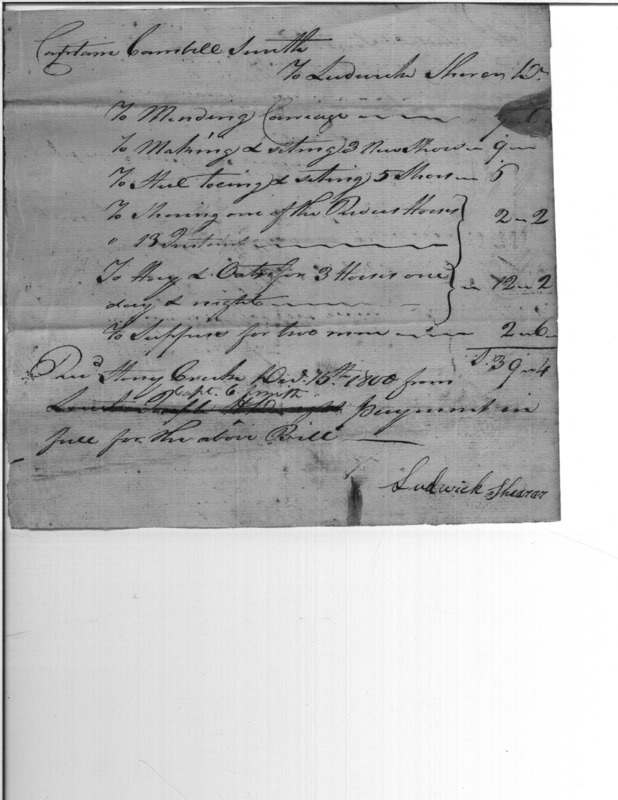 Captain Cambell Smith
To Ludwick Sherar Dr.
To Mending Carriage 7 6
To Making & seting 3 New Shoes 9
To Steel toeing & seting 5 Shoes 6
To Shoeing one of the Horses 2 2
" 13
To Hay & Oats for 3 Horses one 12 2
day & night
To Suppers for two men 2 6
S. 39 4
Recd Stony Creek Decr. 16th 1800 from
Capt. C Smith
payment in
full for the above Bill
Ludwick Shearar